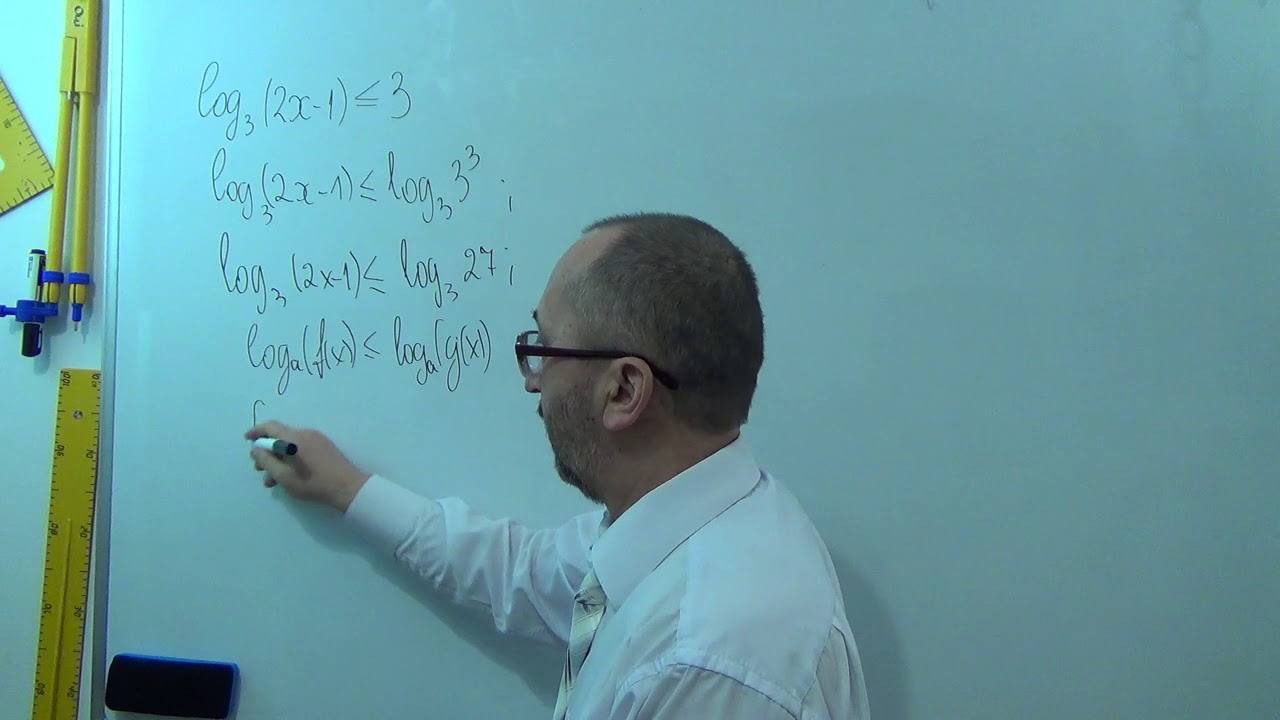 log₃(2x-1) ≤ 3
log₃(2x-1) ≤ log₃3³ ;
log₃(2x-1) ≤ log₃27 ;
logₐ(f(x) ≤ logₐ(g(x))